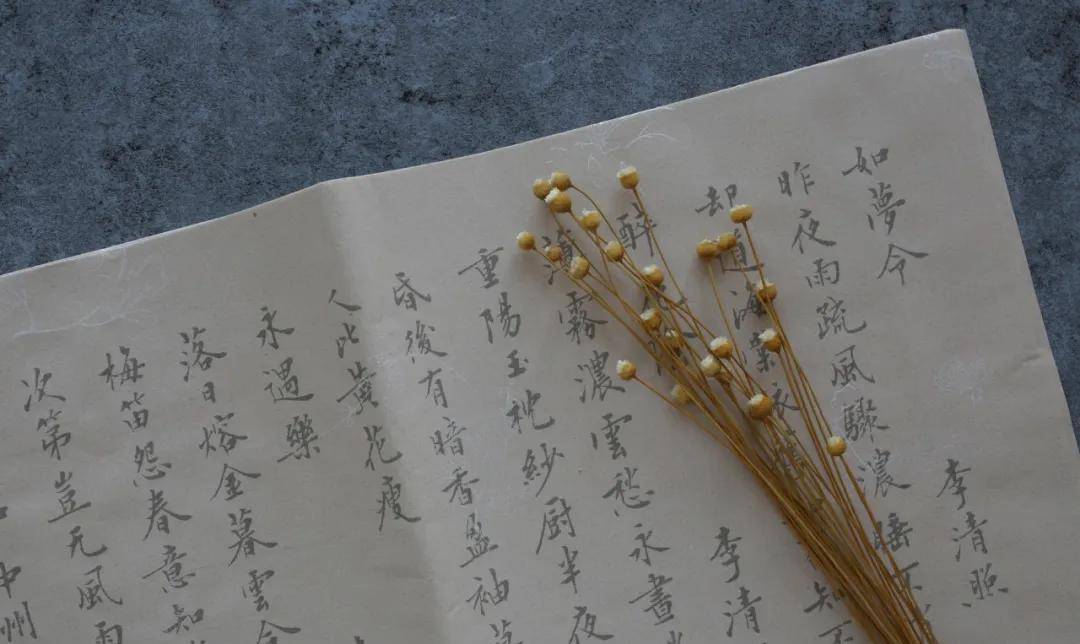 如夢令 李清照
昨夜雨疏風驟濃睡不
却道海棠依 知否
醉 李清
薄霧濃雲愁永晝
重陽玉枕紗厨半夜
昏後有暗香盈袖莫
人比黄花瘦
永遇樂
落日熔金暮雲合
梅笛怨春意知
次第豈无風雨
中州